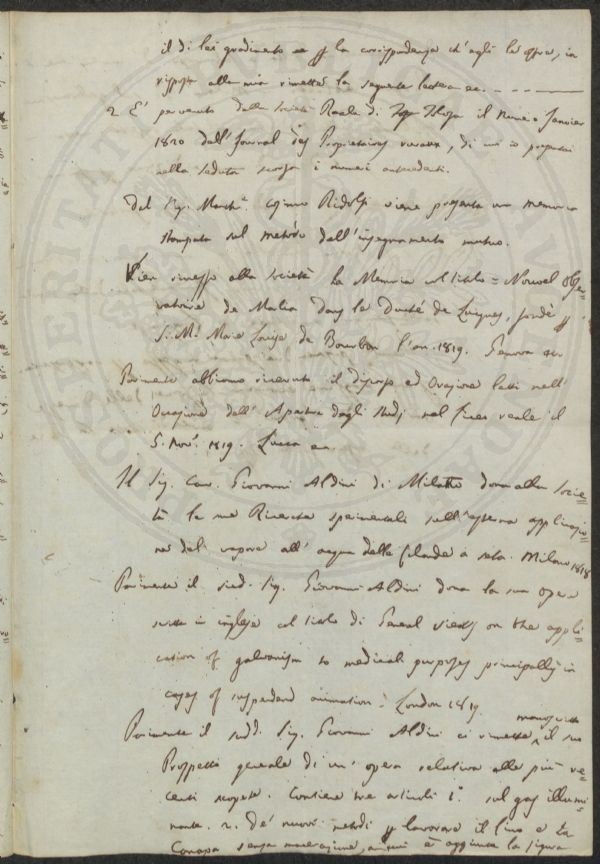 il di lei gradimento e p la corrispondenza ch'egli le offre, in
risposta alla mia rimetto la seguente lettera ec.
2 E' pervenuto dalla società Reale di il Num.o Janvier
1820 dall'Journal des Proprietaires ruraux, di cui io presentai
nella seduta scorsa i numeri antecedenti.
Dal Sig. March.e Cosimo Ridolfi viene presentata una memoria
stampata sul metodo dell'insegnamento mutuo.
Vien rimesso alla società la Memoria col titolo = Nouvel Obser=
vatoire de Marlia dans le Duché de Lucques, fondé p
S. M. Marie Louise de Bourbon l'an. 1819. Genova
Parimente abbiamo ricevuto il discorso ed Orazione letti nell'
Occasione dell'Apertura degli studj nel liceo reale il
5. Nov. 1819. Lucca ec.
Il Sig. Cav. Giovanni Aldini di Milano dona alla socie=
tà le sue Ricerche sperimentali sull'esterna applicazio=
ne del vapore all'acqua delle filande a seta. Milano 1818
Parimente il sud. Sig. Giovanni Aldini dona la sua opera
scritta in inglese col titolo di General Views on the appli=
cation of galvanism to medical purposes principally in
cases of suspended animation. London 1819.
Parimente il sudd. Sig. Giovanni Aldini ci rimette manoscritto il suo
Prospetto generale di un'opera relativa alle più re=
centi scoperte. Contiene tre articoli 1.° sul gas illumi=
nante. 2. de' nuovi metodi p lavorare il lino e la
Canapa senza macerazione, è aggiunta la figura